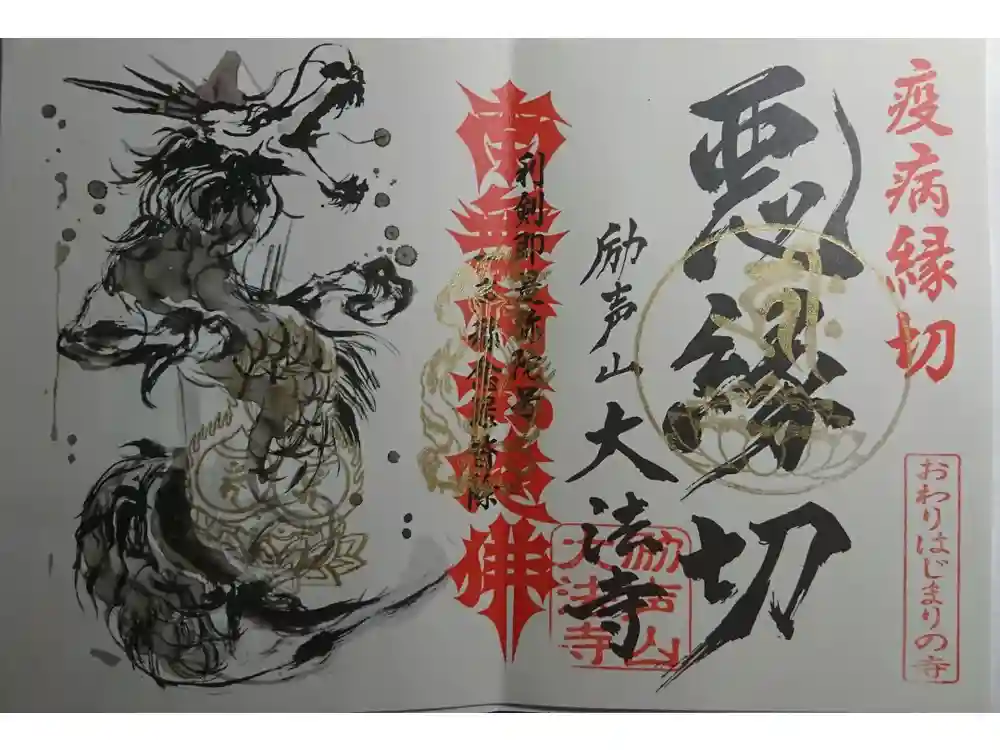 疫病縁切
悪縁切
おわりはじまりの寺
励声山
大法寺
励声山
大法寺
利剣即是弥陀号
南無阿弥陀佛